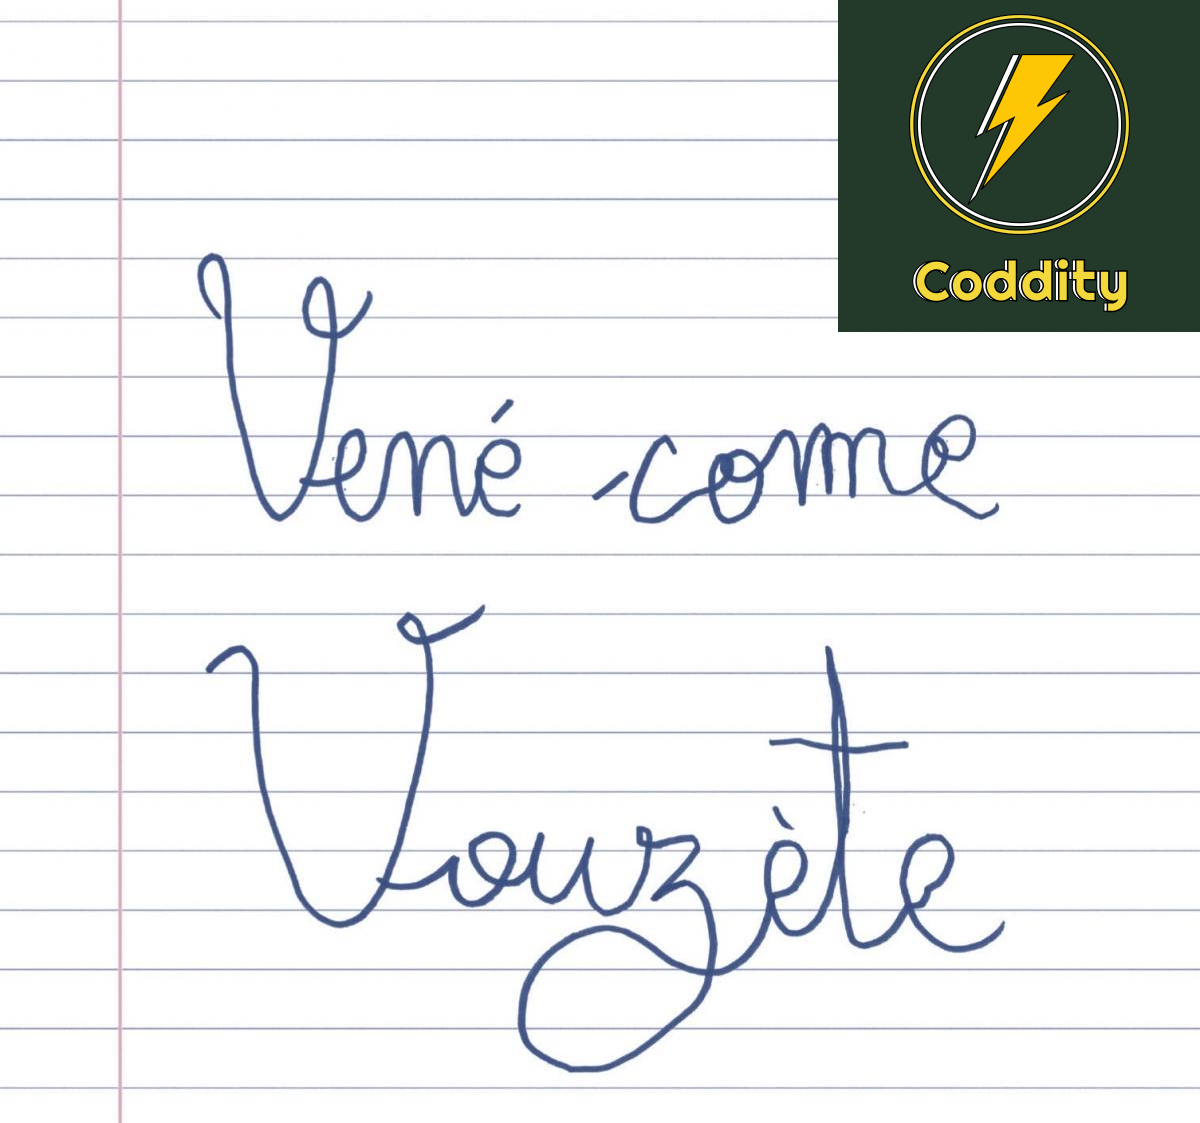 Coddity
Vené come
Vouzète